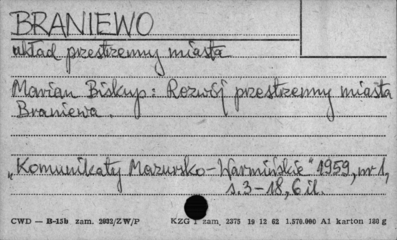 BRANIEWO
układ przestrzenny miasta
Marian Biskup: Rozwój przestrzenny miasta
Braniewa.
„Komunikaty Mazursko-Warmińskie" 1959, nr 1,
s. 3-18, 6 il.
CWD — B-15b zam. 2982/ZW/P KZG 1 zam. 2375 19 12 62 1.570.000 A1 karton 180 g